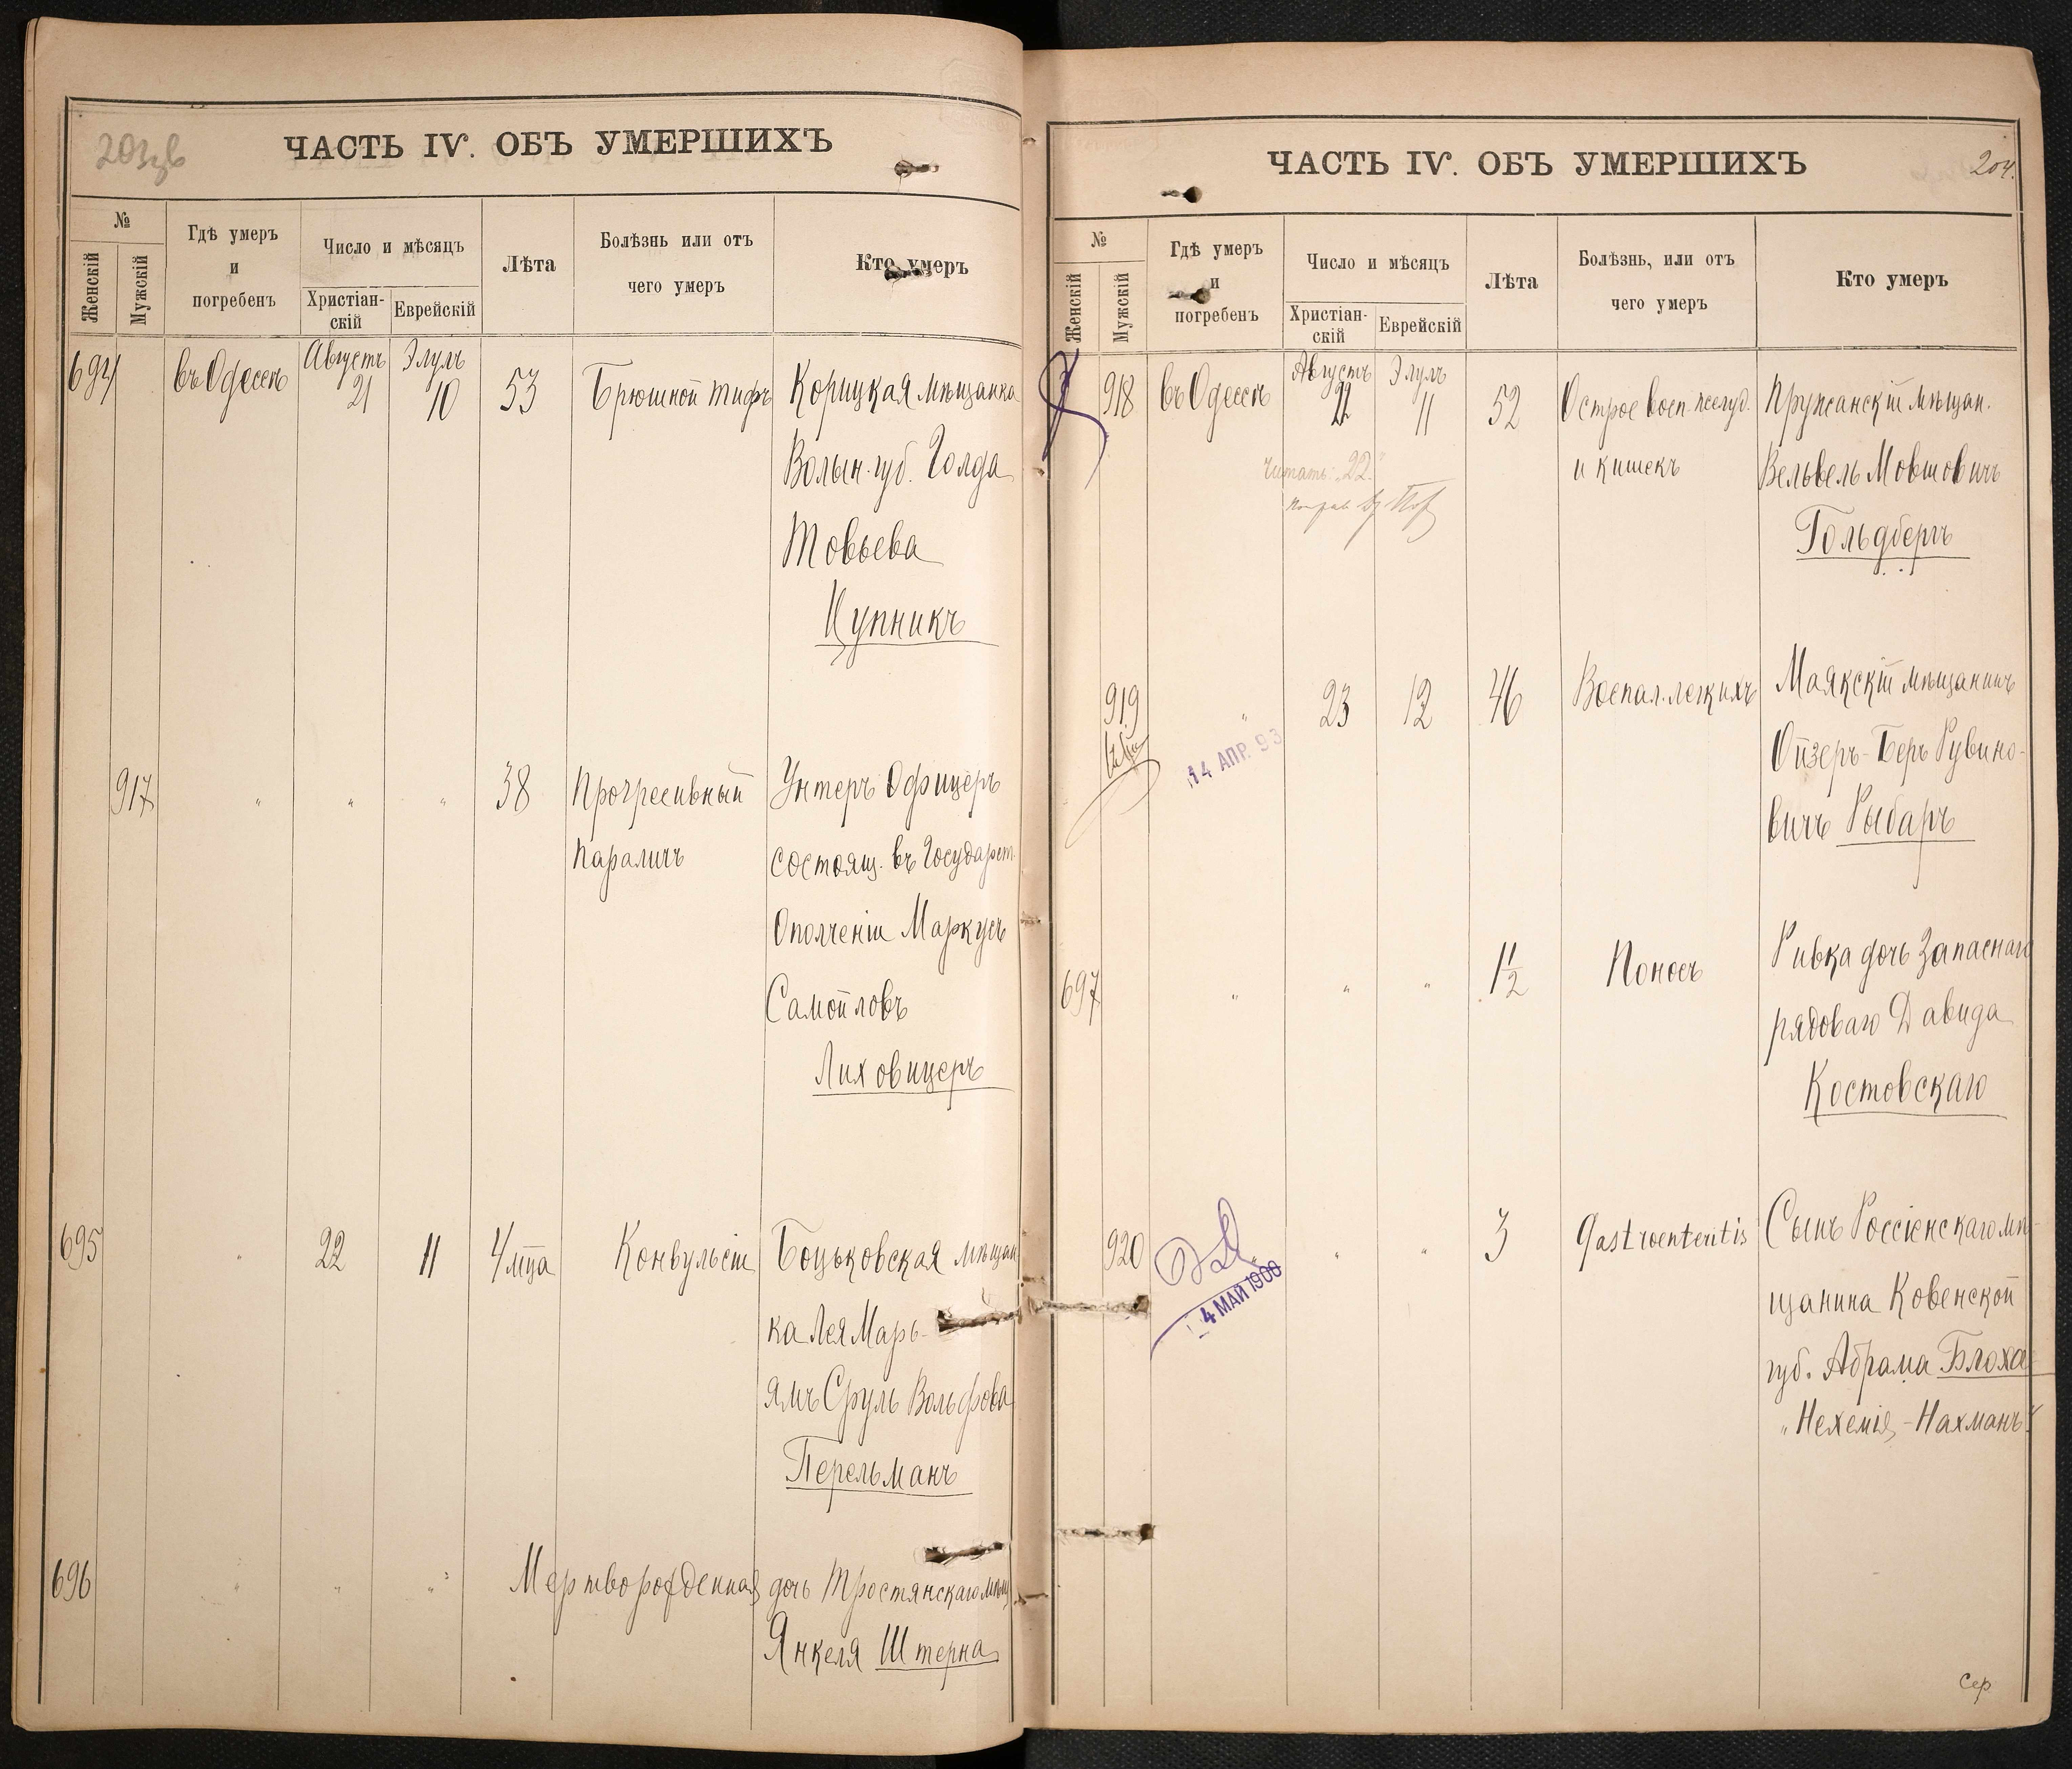 203зв
ЧАСТЬ IV. ОБЪ УМЕРШИХЪ
№
Женскій
Мужскій
Гдѣ умеръ
и
погребенъ
Число и мѣсяцъ
Христіан-
скій
Еврейскій
Лѣта
Болѣзнь или отъ
чего умеръ
Кто умеръ
694 въ Одессѣ Августъ 21 Элулъ 10 53 Брюшной тифъ Корицкая мѣщанка
Волын. губ. Голда
Товьева
Цупникъ
917 " " " 38 Прогресивный Унтеръ Офицеръ
параличъ состоящ. въ Государст.
Ополченіи Маркусъ
Самойловъ
Лиховицеръ
695 " 22 11 4 мца Конвульсіи Боцьковская мѣщан
ка Лея Марь-
ямъ Сруль Вольфова
Перельманъ
696 " " " Мертворожденная дочь Тростянскаго мѣщ
Янкеля Штерна
204.
ЧАСТЬ IV. ОБЪ УМЕРШИХЪ
№
Женскій
Мужскій
Гдѣ умеръ
и
погребенъ
Число и мѣсяцъ
Христіан-
скій
Еврейскій
Лѣта
Болѣзнь, или отъ
чего умеръ
Кто умеръ
918 въ Одессѣ Августъ 22 Элулъ 11 52 Острое восп. желуд. Пружанскій мѣщан.
и кишекъ Вельвель Мовшовичъ
Читать: "22"
Гольдбергъ
919 " 23 12 46 Воспал. легкихъ Маякскій мѣщанинъ
14 АПР. 93
Ойзеръ-Беръ Рувино-
вичъ Рыбаръ
697 " " " 1 1/2 Поносъ Ривка дочь Запаснаго
рядоваго Давида
Костовскаго
920 " " 3 Gastroenteritis Сынъ Россіенскаго мѣ-
4 МАЙ 1900
щанина Ковенской
губ. Абрама Блоха-
"Нехемія-Нахманъ"
Сер